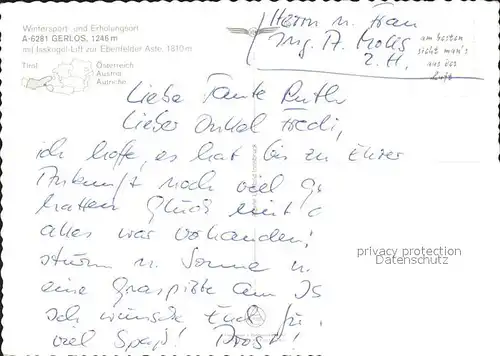 Wintersport- und Erholungsort
A-6281 GERLOS, 1246 m
mit Isskogel-Lift zur Ebenfelder Aste, 1810 m
Tirol
Österreich
Austria
Autriche
Herrn u. Frau
Ing. A.
z. H.
am besten
sieht man's
aus der
Luft
Liebe Tante Ruth
Lieber Onkel Fredi,
ich hoffe, es hat bis zu Eurer
Ankunft noch viel
hatten Glück mit
alles war vorhanden:
Sturm u. Sonne u.
eine am
Ich wünsche Euch
viel Spaß! Prost!
privacy protection
Datenschutz